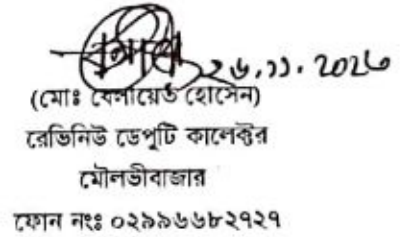 ২৬.১১.২০২৩
(মোঃ বেলায়েত হোসেন)
রেভিনিউ ডেপুটি কালেক্টর
মৌলভীবাজার
ফোন নংঃ ০২৯৯৬৬৮২৭২৭